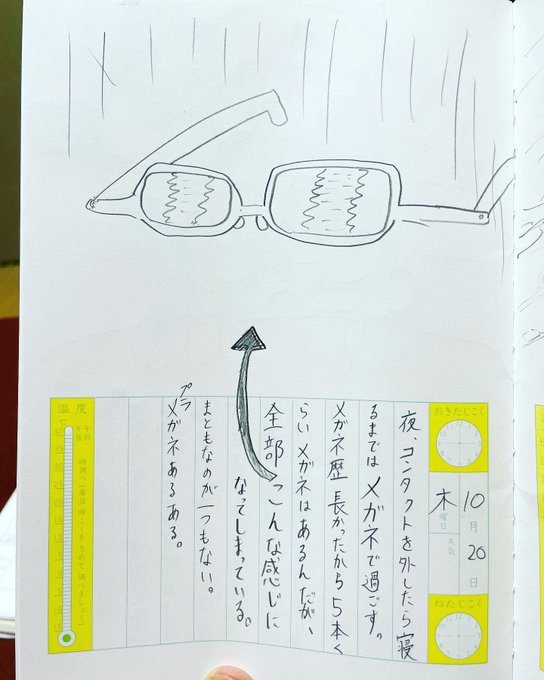 おきたじこく
10月20日
木曜日
天気
ねたじこく
夜、コンタクトを外したら寝
るまではメガネで過ごす。
メガネ歴長かったから5本く
らいメガネはあるんだが、
全部こんな感じに
なってしまっている。
まともなのが一つもない。
プラ
メガネあるある。
温度
午前
午後